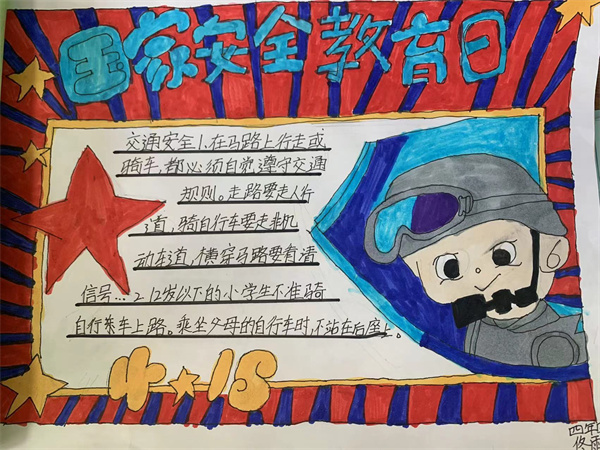 国家安全教育日
交通安全1.在马路上行走或
骑车,都必须自觉遵守交通
规则。走路要走人行
道,骑自行车要走非机
动车道,横穿马路要看清
信号...2.12岁以下的小学生不准骑
自行车上路。乘坐父母的自行车时,不站在后座上。
4·15
四年
佟雨